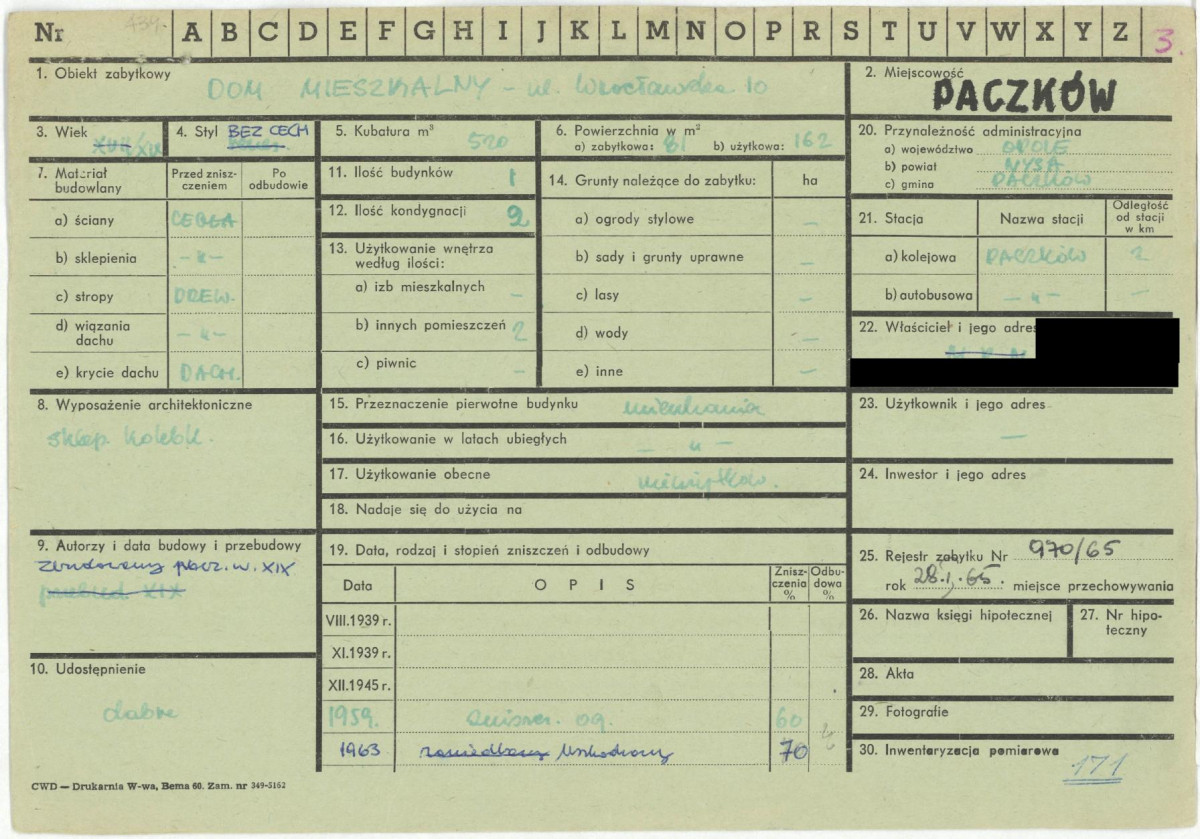 Nr 439. A B C D E F G H I J K L M N O P R S T U V W X Y Z 3.
1. Obiekt zabytkowy DOM MIESZKALNY – ul. Wrocławska 10
2. Miejscowość PACZKÓW
3. Wiek XVIII/XIX
4. Styl BEZ CECH
5. Kubatura m³ 520
6. Powierzchnia w m²
a) zabytkowa: 81 b) użytkowa: 162
20. Przynależność administracyjna
a) województwo OPOLE
b) powiat NYSA
c) gmina PACZKÓW
7. Materiał budowlany
Przed zniszczeniem
Po odbudowie
a) ściany CEGŁA
b) sklepienia – „ –
c) stropy DREW.
d) wiązania dachu – „ –
e) krycie dachu DACH.
11. Ilość budynków 1
12. Ilość kondygnacji 2
13. Użytkowanie wnętrza według ilości:
a) izb mieszkalnych –
b) innych pomieszczeń 2
c) piwnic –
14. Grunty należące do zabytku: ha
a) ogrody stylowe –
b) sady i grunty uprawne –
c) lasy –
d) wody –
e) inne –
21. Stacja
Nazwa stacji
Odległość od stacji w km
a) kolejowa PACZKÓW 2
b) autobusowa – „ – –
22. Właściciel i jego adres
8. Wyposażenie architektoniczne
sklep. kolebk.
15. Przeznaczenie pierwotne budynku mieszkania
16. Użytkowanie w latach ubiegłych – „ –
17. Użytkowanie obecne nieużytków.
18. Nadaje się do użycia na
23. Użytkownik i jego adres
–
24. Inwestor i jego adres
9. Autorzy i data budowy i przebudowy
Zbudowany pocz. w. XIX
przebud XIX
10. Udostępnienie
dobre
19. Data, rodzaj i stopień zniszczeń i odbudowy
Data
O P I S
Zniszczenia %
Odbudowa %
VIII.1939 r.
XI.1939 r.
XII.1945 r.
1959. zniszcz. og. 60
1963 zaniedbany uszkodzony 70
25. Rejestr zabytku Nr 970/65
rok 28.I.65. miejsce przechowywania
26. Nazwa księgi hipotecznej
27. Nr hipoteczny
28. Akta
29. Fotografie
30. Inwentaryzacja pomiarowa
171
CWD — Drukarnia W-wa, Bema 60. Zam. nr 349-5162